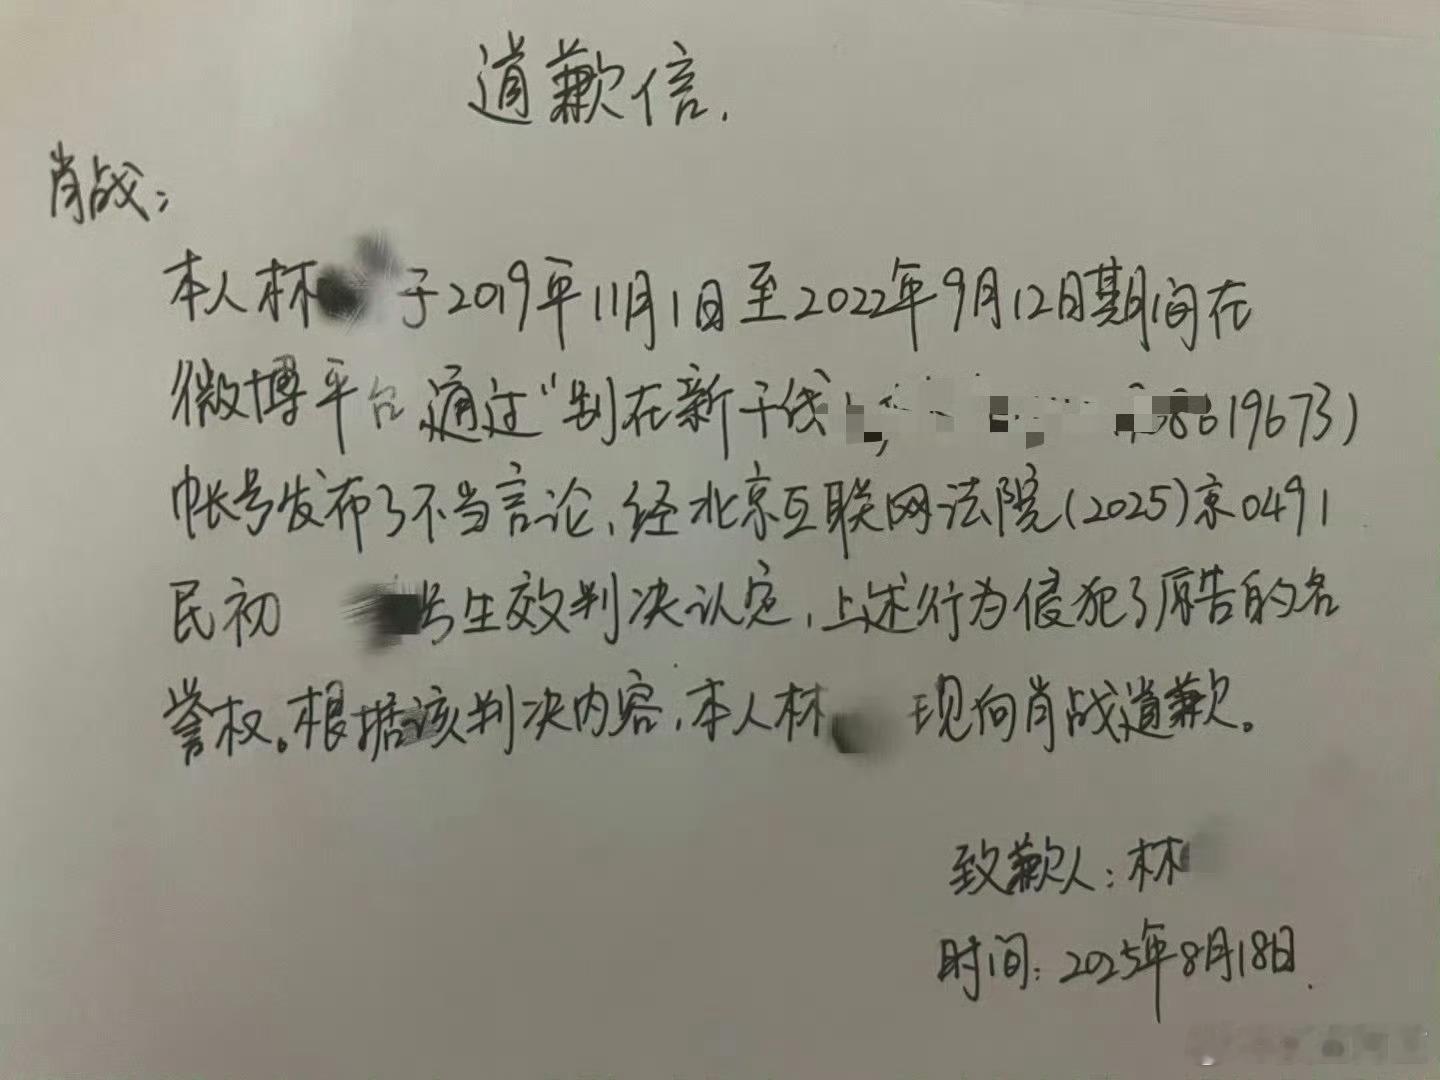 道歉信.
肖战:
本人林 于2019年11月1日至2022年9月12日期间在
微博平台通过“别在新干线 8619673)
帐号发布了不当言论,经北京互联网法院(2025)京0491
民初 号生效判决认定,上述行为侵犯了原告的名
誉权。根据该判决内容,本人林 现向肖战道歉。
致歉人:林
时间:2025年8月18日.